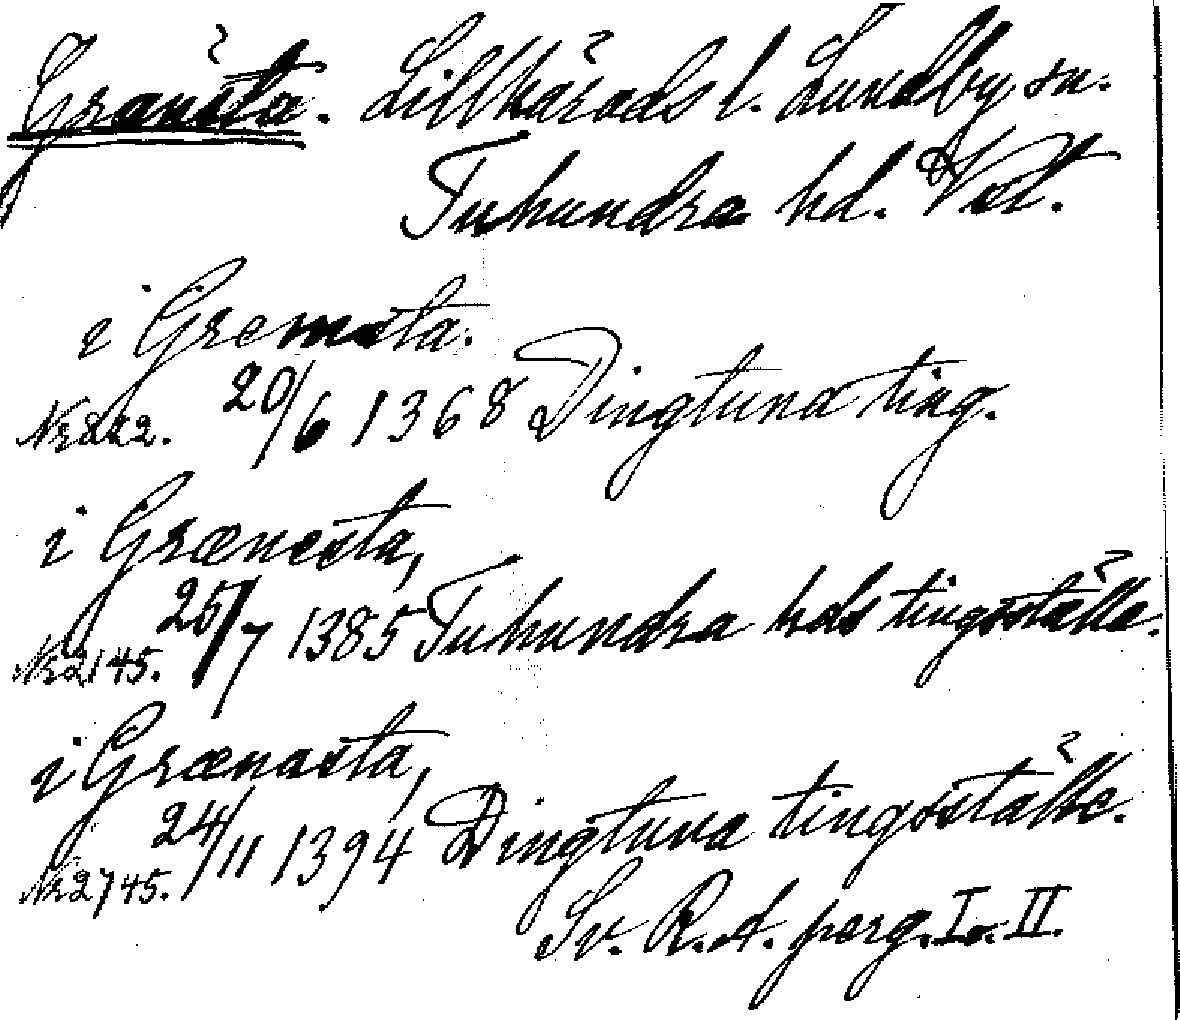 Gränsta. Lillhärads l. Lundby sn.
Tuhundra hd. Vstl.
i Gremsta.
Nr 842. 20/6 1368 Dingtuna ting.
i Grænesta,
Nr 2145. 25/7 1385 Tuhundra hds tingsställe.
i Grænasta,
Nr 2745. 24/11 1394 Dingtuna tingsställe.
Sv. R. A. perg. I o. II.